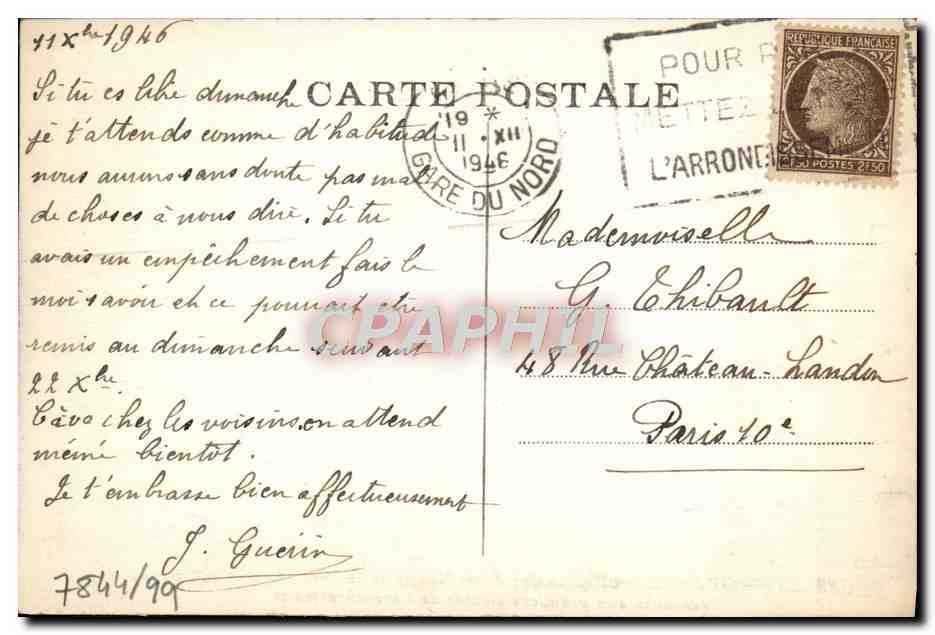 11 Xbre 1946
Si tu es libre dimanche
je t'attends comme d'habitude
nous aurons sans doute pas mal
de choses à nous dire. Si tu
avais un empêchement fais le
moi savoir et ce pourrait être
remis au dimanche suivant
22 Xbre.
Cà va chez les voisins, on attend
mémé bientôt.
Je t'embrasse bien affectueusement
J. Guérin
7844/99
CARTE POSTALE
19
* 
11 • XII
1946
GARE DU NORD
POUR
METTEZ
L'ARRONDIS
REPUBLIQUE FRANÇAISE
2F50 POSTES 2F50
Mademoiselle
G. Thibault
48 Rue Château-Landon
Paris 10e
CPAPHIL